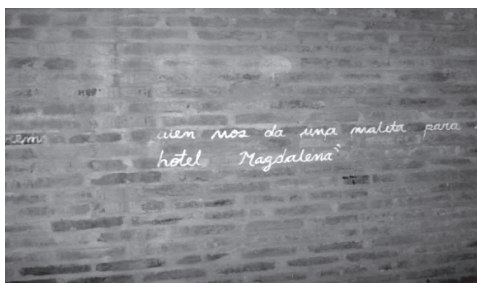 uien nos da una maleta para
hotel Magdalena"